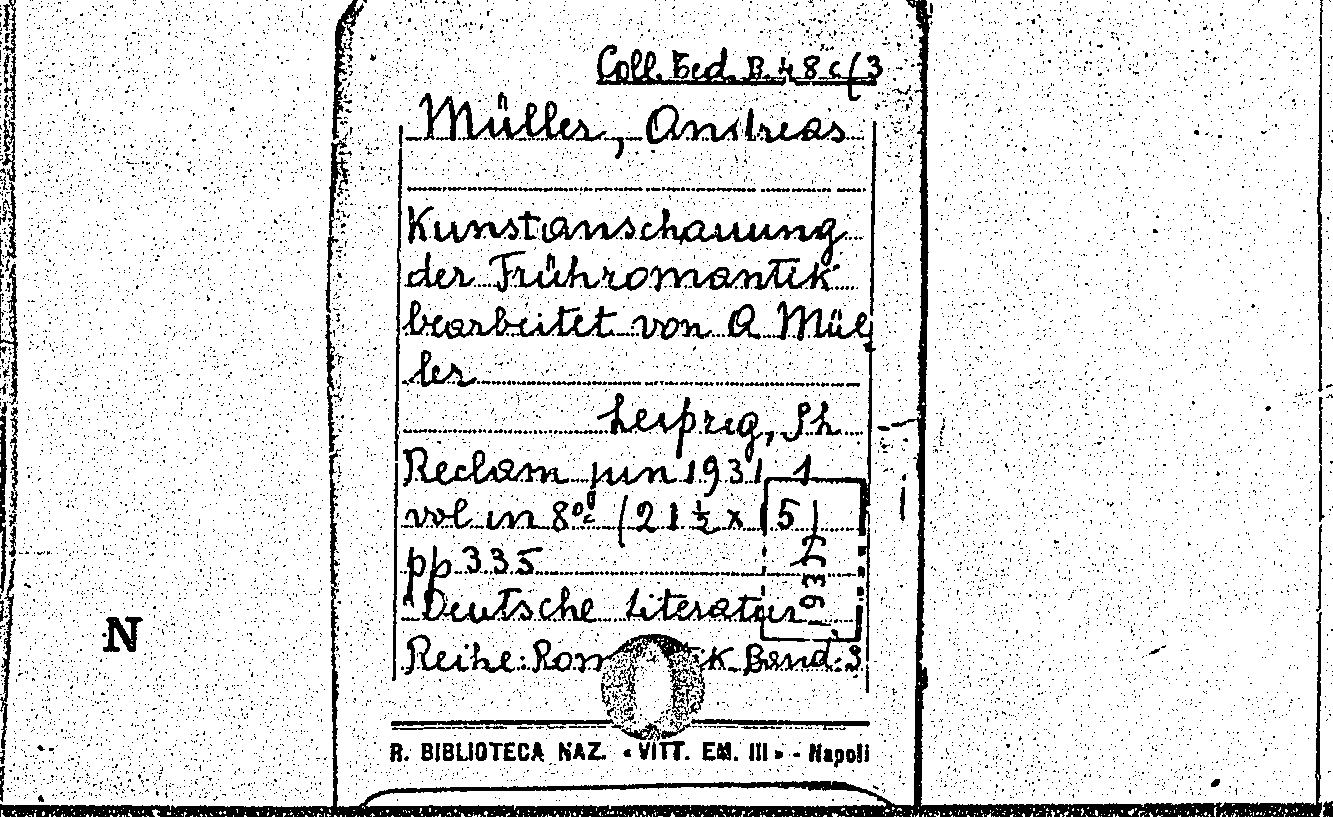 Coll. Ted. B. 48 c (3
Müller, Andreas
Kunstanschauung
der Frühromantik
bearbeitet von A Mül
ler
Leipzig, Ph
Reclam jun 1931 1
vol in 8º (21 ½ x 15)
pp 335
"Deutsche Literatur
Reihe: Rom ik Band. 3
1937
N
R. BIBLIOTECA NAZ. « VITT. EM. III » - Napoli